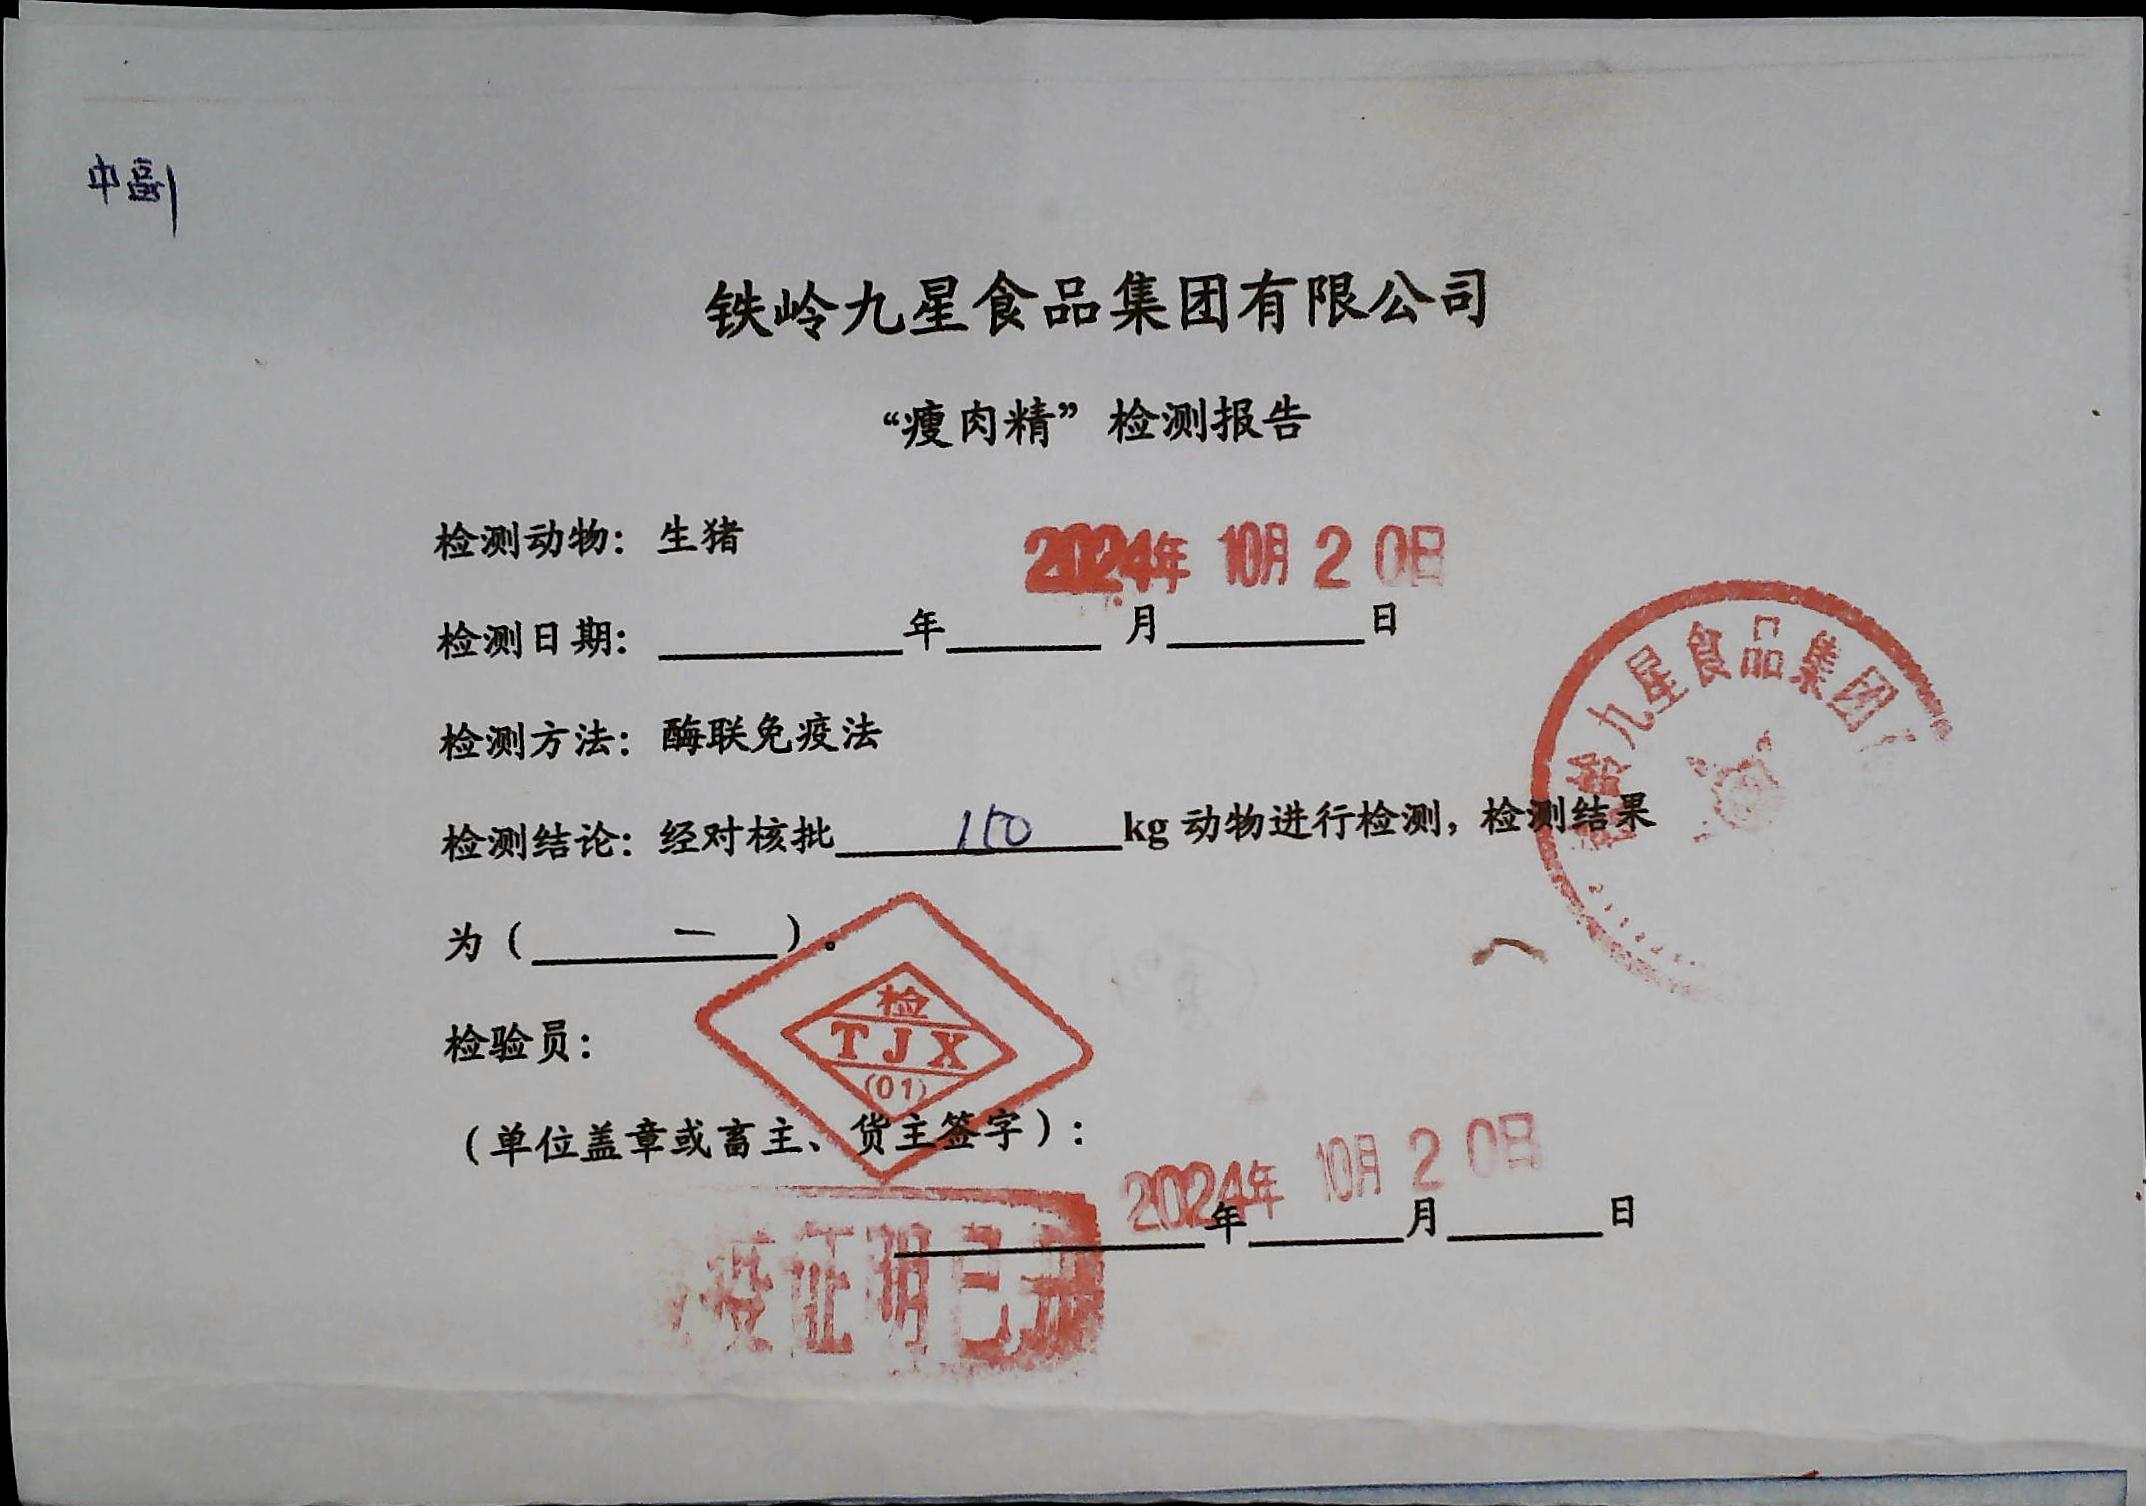 中副
铁岭九星食品集团有限公司
“瘦肉精”检测报告
检测动物：生猪
2024年 10月 20日
检测日期：______年____月____日
九星食品集团
检测方法：酶联免疫法
检测结论：经对核批 150 kg 动物进行检测，检测结果
为（ — ）。
检
TJX
(01)
检验员：
（单位盖章或畜主、货主签字）：
2024年 10月 20日
______年____月____日
疫证明已